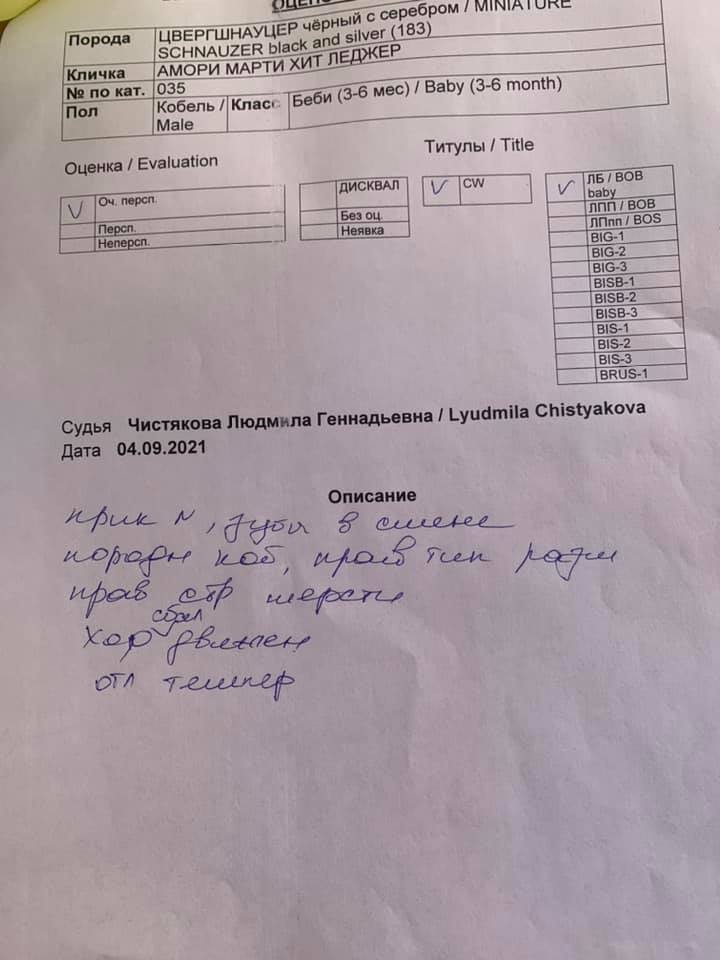 ОЦЕНО
Порода ЦВЕРГШНАУЦЕР чёрный с серебром / MINIATURE
SCHNAUZER black and silver (183)
Кличка АМОРИ МАРТИ ХИТ ЛЕДЖЕР
№ по кат. 035
Пол Кобель / Male Класс Беби (3-6 мес) / Baby (3-6 month)
Оценка / Evaluation
Титулы / Title
V Оч. персп.
Персп.
Неперсп.
ДИСКВАЛ
Без оц.
Неявка
V CW
V ЛБ / BOB baby
ЛПП / BOB
ЛПпп / BOS
BIG-1
BIG-2
BIG-3
BISB-1
BISB-2
BISB-3
BIS-1
BIS-2
BIS-3
BRUS-1
Судья Чистякова Людмила Геннадьевна / Lyudmila Chistyakova
Дата 04.09.2021
Описание
прик N, зубы в смене
породн коб, прав тип разм
прав стр шерсти
хор сбал движен
отл темпер